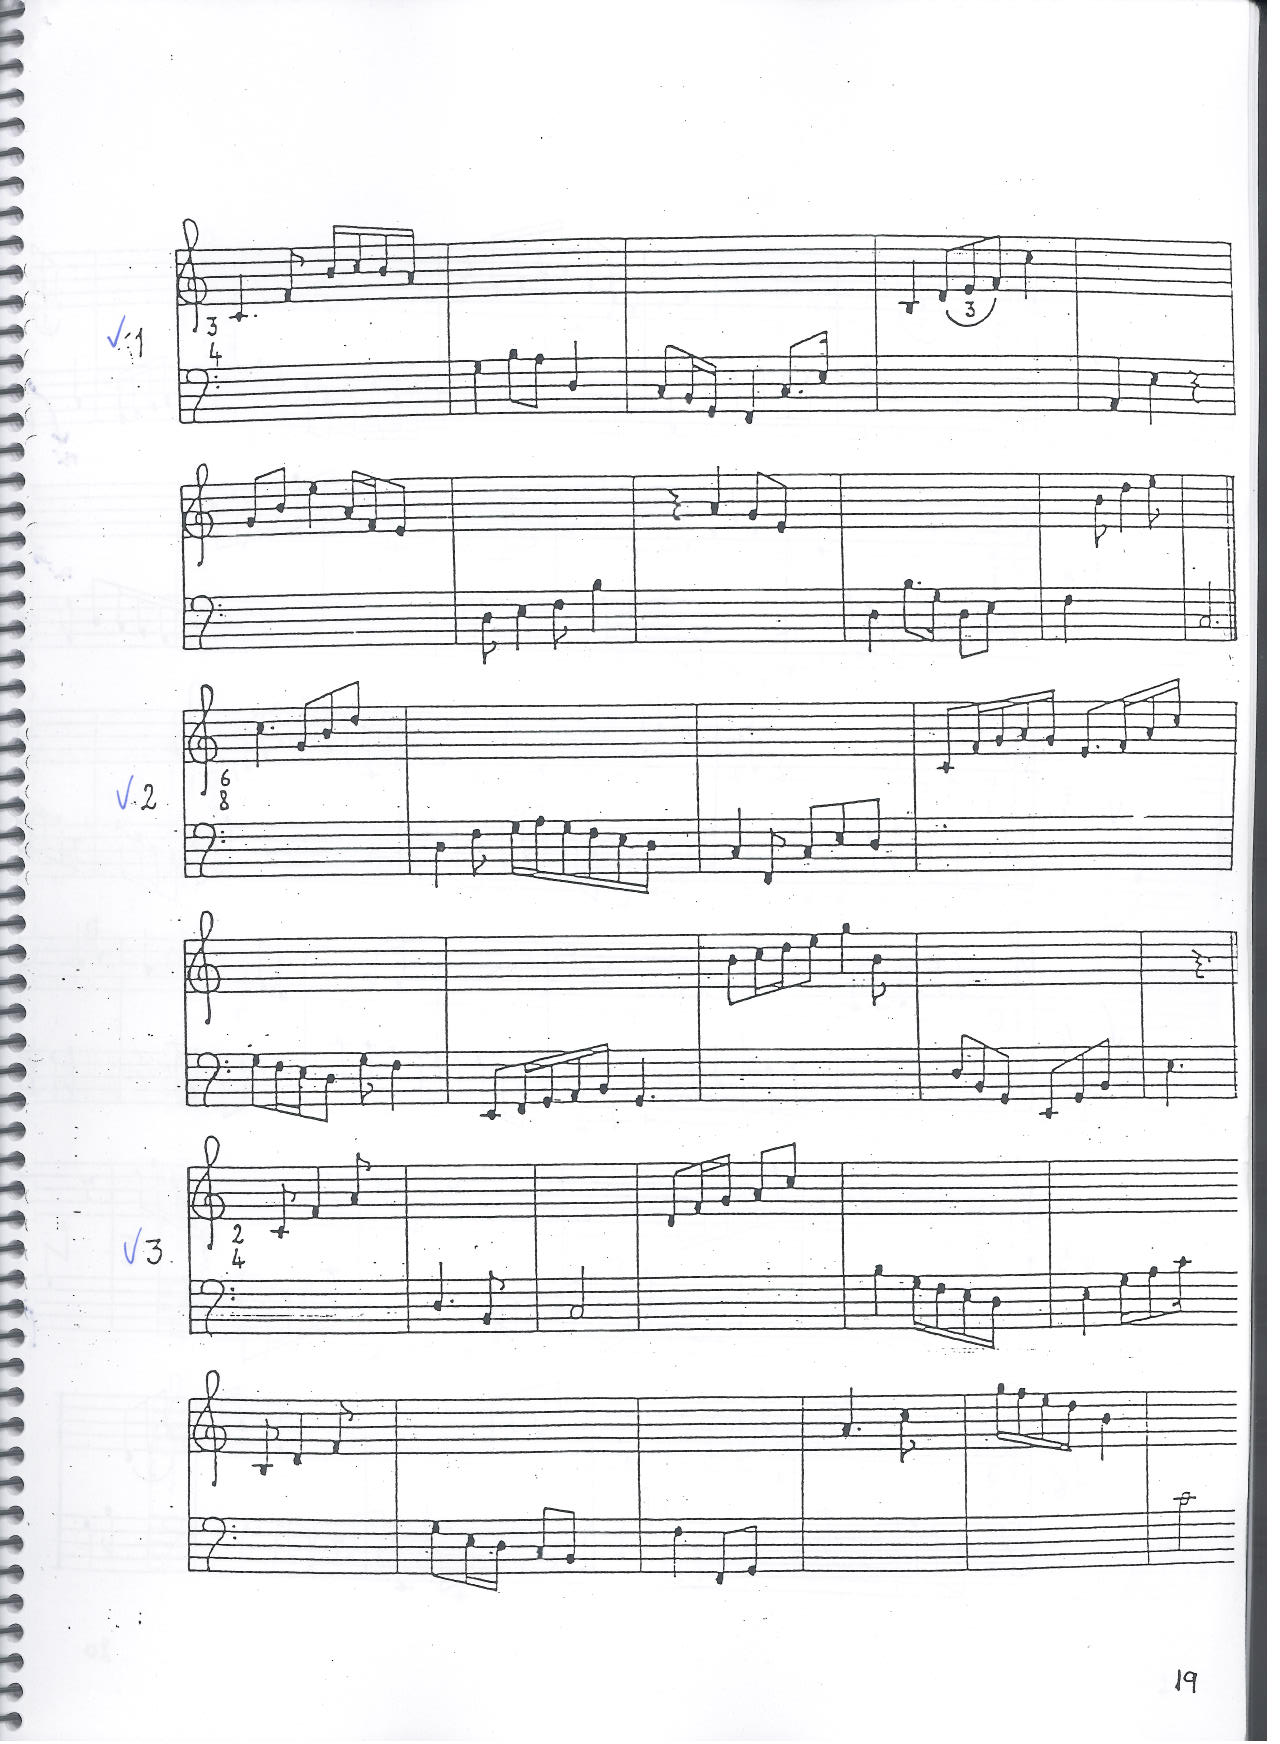 1
3
4
3
2
6
8
3
2
4
19